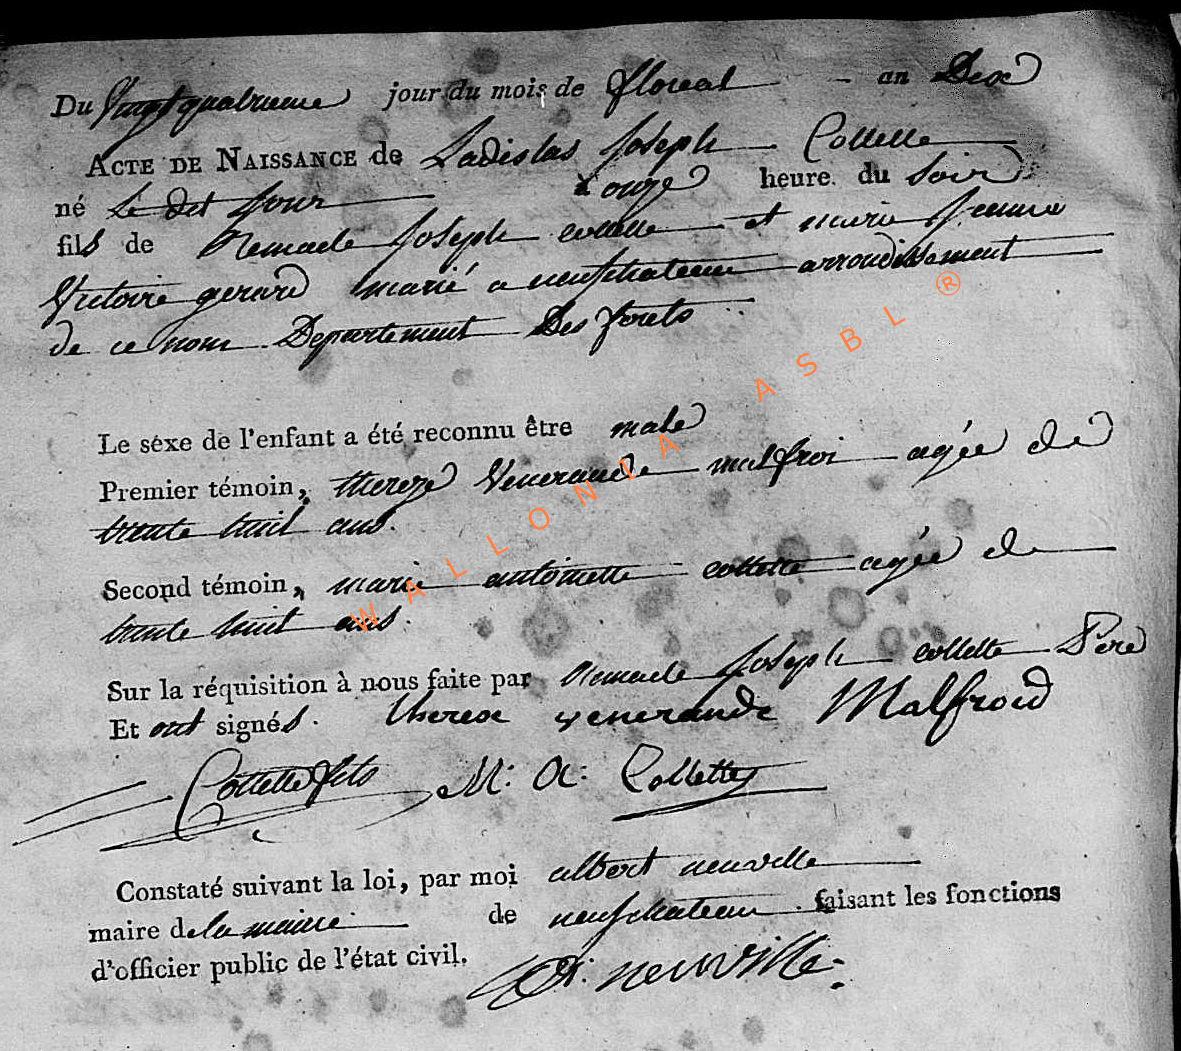 Du Vingt quatrieme jour du mois de floreal - an Dix
ACTE DE NAISSANCE de Ladislas Joseph Collette
né Le dit Jour à onze heure du Soir
fils de Remacle Joseph collette et marie Jeanne
Victoire gerard marié a neufchateau arrondissement
de ce nom Departement Des forets
Le sexe de l'enfant a été reconnu être male
Premier témoin, thereze Venerande malfroi agée de
trente huit ans.
Second témoin, marie antoinette collette agée de
trente huit ans.
Sur la réquisition à nous faite par Remacle Joseph collette Pere
Et ont signés. therese venerande Malfroid
Collette fils M: A: Collette
Constaté suivant la loi, par moi albert neuville
maire de la mairie de neufchateau faisant les fonctions
d'officier public de l'état civil. A: neuville
WALLONIA ASBL ®